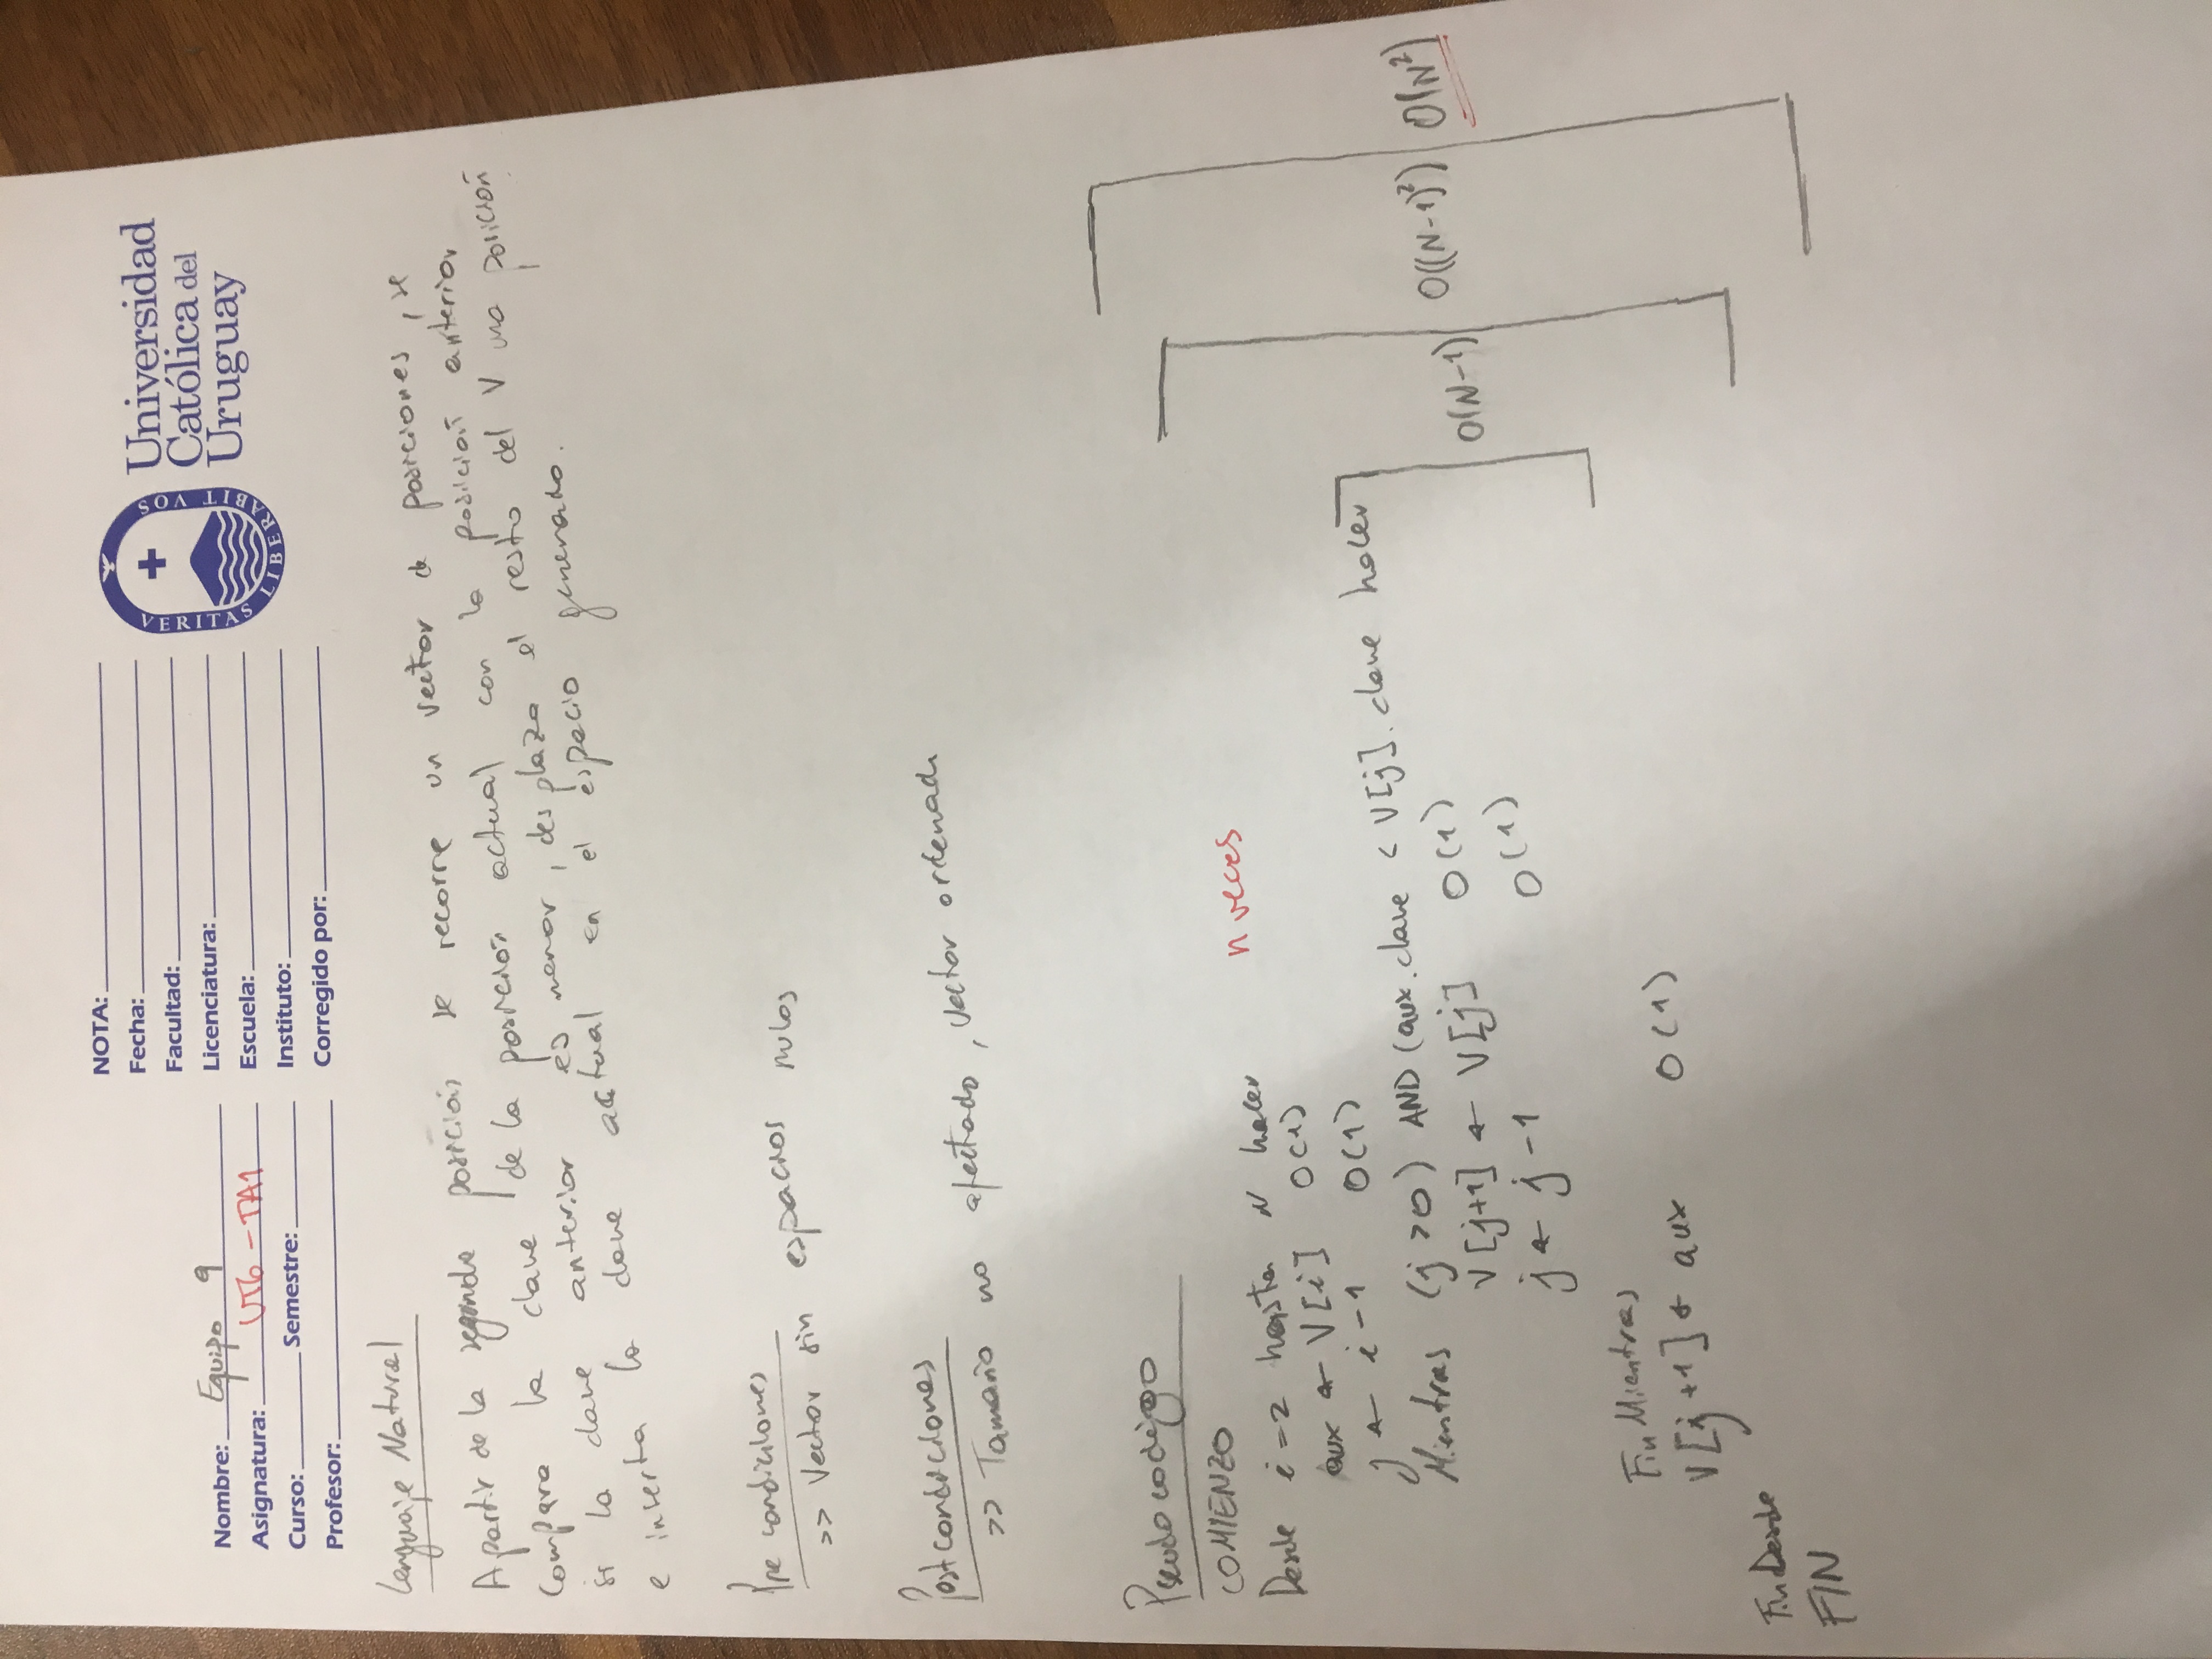 NOTA:
Fecha:
Facultad:
Licenciatura:
Escuela:
Instituto:
Corregido por:
VERITAS LIBERABIT VOS
Universidad
Católica del
Uruguay
Nombre: Equipo 9
Asignatura: UT6 - TA1
Curso: Semestre:
Profesor:
Lenguaje Natural
A partir de la segunda posición se recorre un vector de posiciones, se
compara la clave de la posición actual con la posición anterior
si la clave anterior es menor, desplaza el resto del V una posición
e inserta la clave actual en el espacio generado.
Pre condiciones
>> Vector sin espacios nulos
Postcondiciones
>> Tamaño no afectado, vector ordenado
Pseudocodigo
COMIENZO
Desde i=2 hasta N hacer n veces
aux ← V[i] O(1)
j ← i-1 O(1)
Mientras (j>0) AND (aux.clave < V[j].clave hacer
V[j+1] ← V[j] O(1)
j ← j-1 O(1)
Fin Mientras
V[j+1] ← aux O(1)
FinDesde
FIN
O(N-1) O((N-1)²) O(N²)